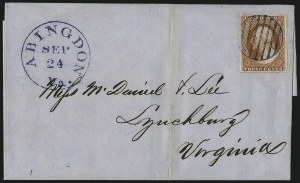 ABINGDON
SEP
24
Va.
THREE CENTS
Mess McDaniel & Lee
Lynchburg
Virginia